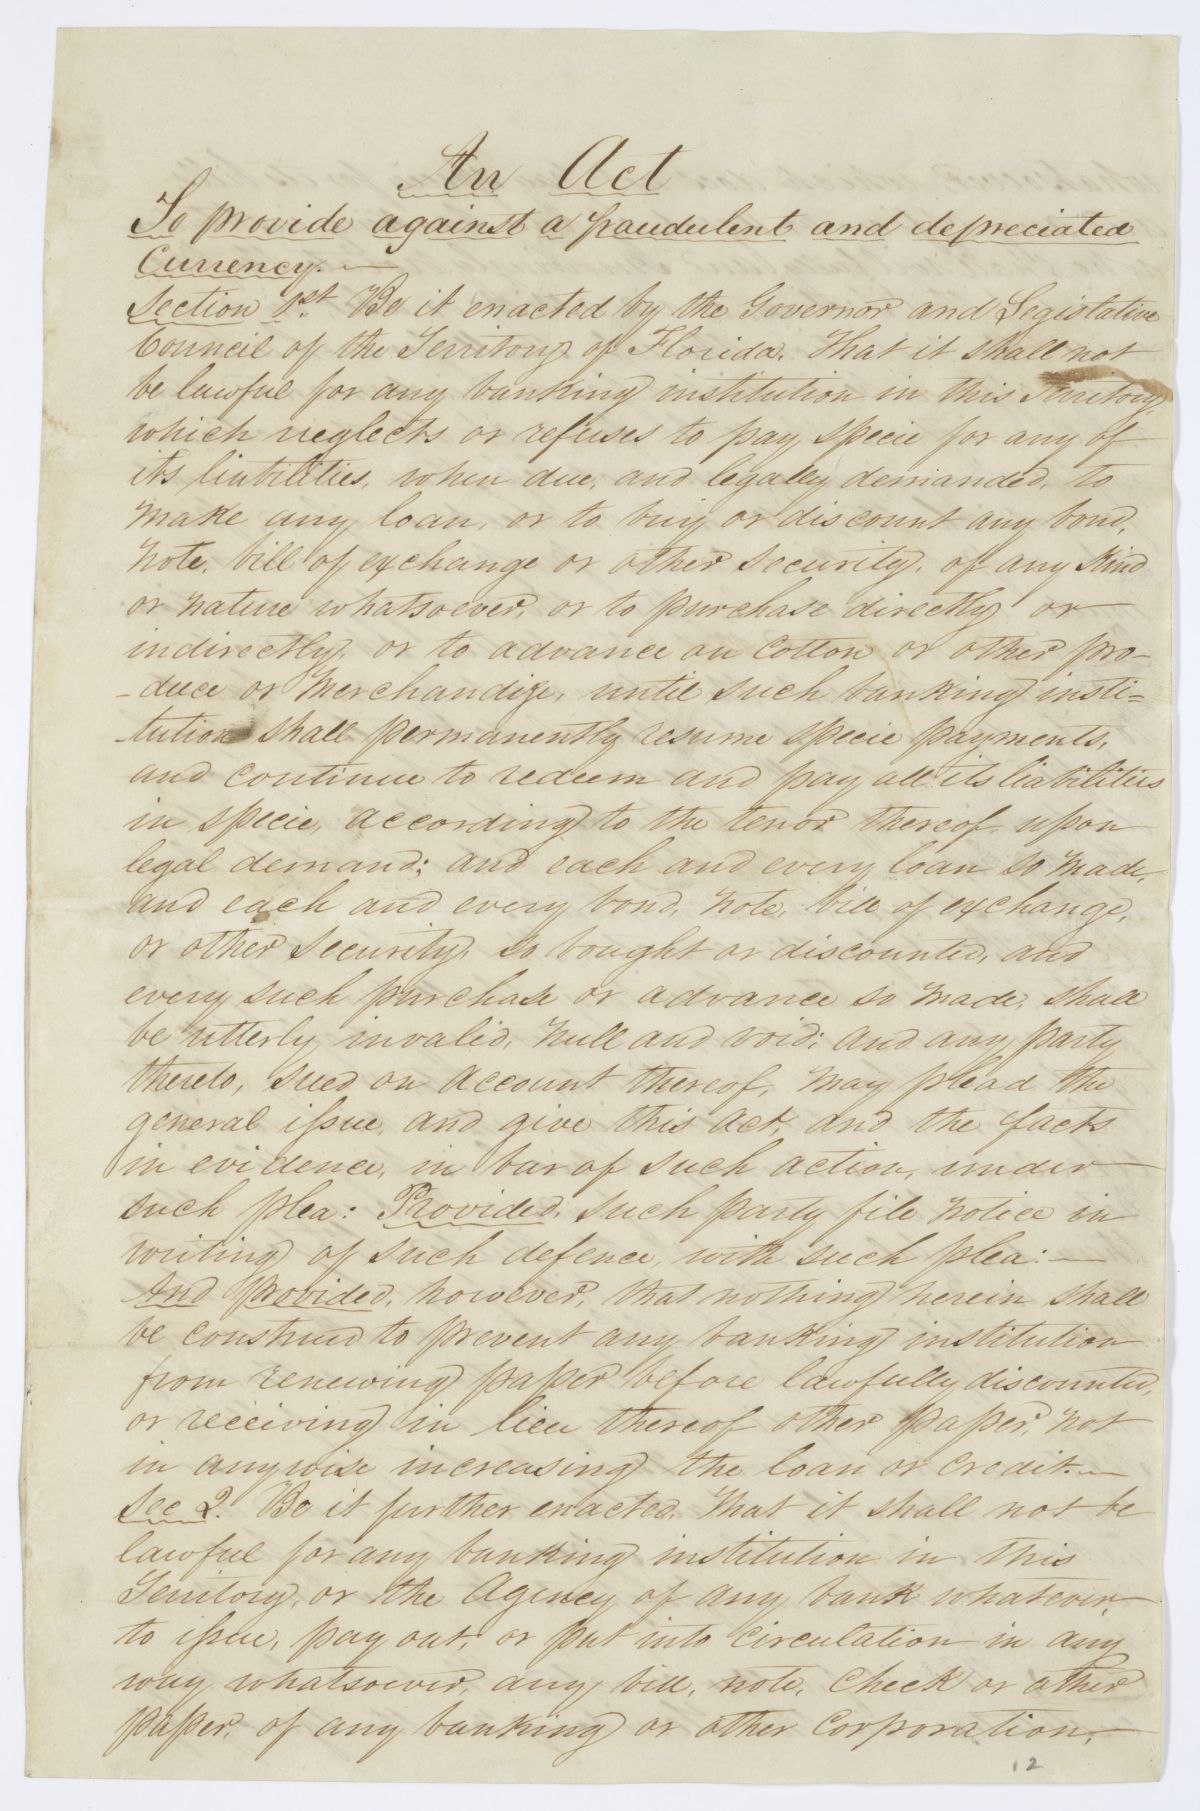 An Act
To provide against a fraudulent and depreciated
Currency.—
Section 1st. Be it enacted by the Governor and Legislative
Council of the Territory of Florida, That it shall not
be lawful for any banking institution in this Territory,
which neglects or refuses to pay specie for any of
its liabilities, when due, and legally demanded, to
make any loan, or to buy or discount any bond,
note, bill of exchange or other security, of any kind
or nature whatsoever, or to purchase directly or
indirectly, or to advance on Cotton or other pro-
-duce or Merchandize, until such banking insti=
-tution shall permanently resume specie payments,
and continue to redeem and pay all its liabilities
in specie, according to the tenor thereof, upon
legal demand; and each and every loan so made,
and each and every bond, note, bill of exchange,
or other security, so bought or discounted, and
every such purchase or advance so made, shall
be utterly invalid, null and void; and any party
thereto, sued on account thereof, may plead the
general issue, and give this act, and the facts
in evidence, in bar of such action, under
such plea: Provided, such party file notice in
writing of such defence, with such plea:—
And provided, however, that nothing herein shall
be construed to prevent any banking institution
from renewing paper before lawfully discounted,
or receiving in lieu thereof other paper, not
in anywise increasing the loan or credit.—
Sec 2. Be it further enacted, That it shall not be
lawful for any banking institution in this
Territory, or the Agency of any bank whatever,
to issue, pay out, or put into circulation in any
way whatsoever, any bill, note, Check or other
paper, of any banking or other Corporation,—
12